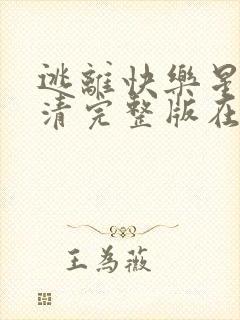 逃離快樂星
清完整版在
王為薇